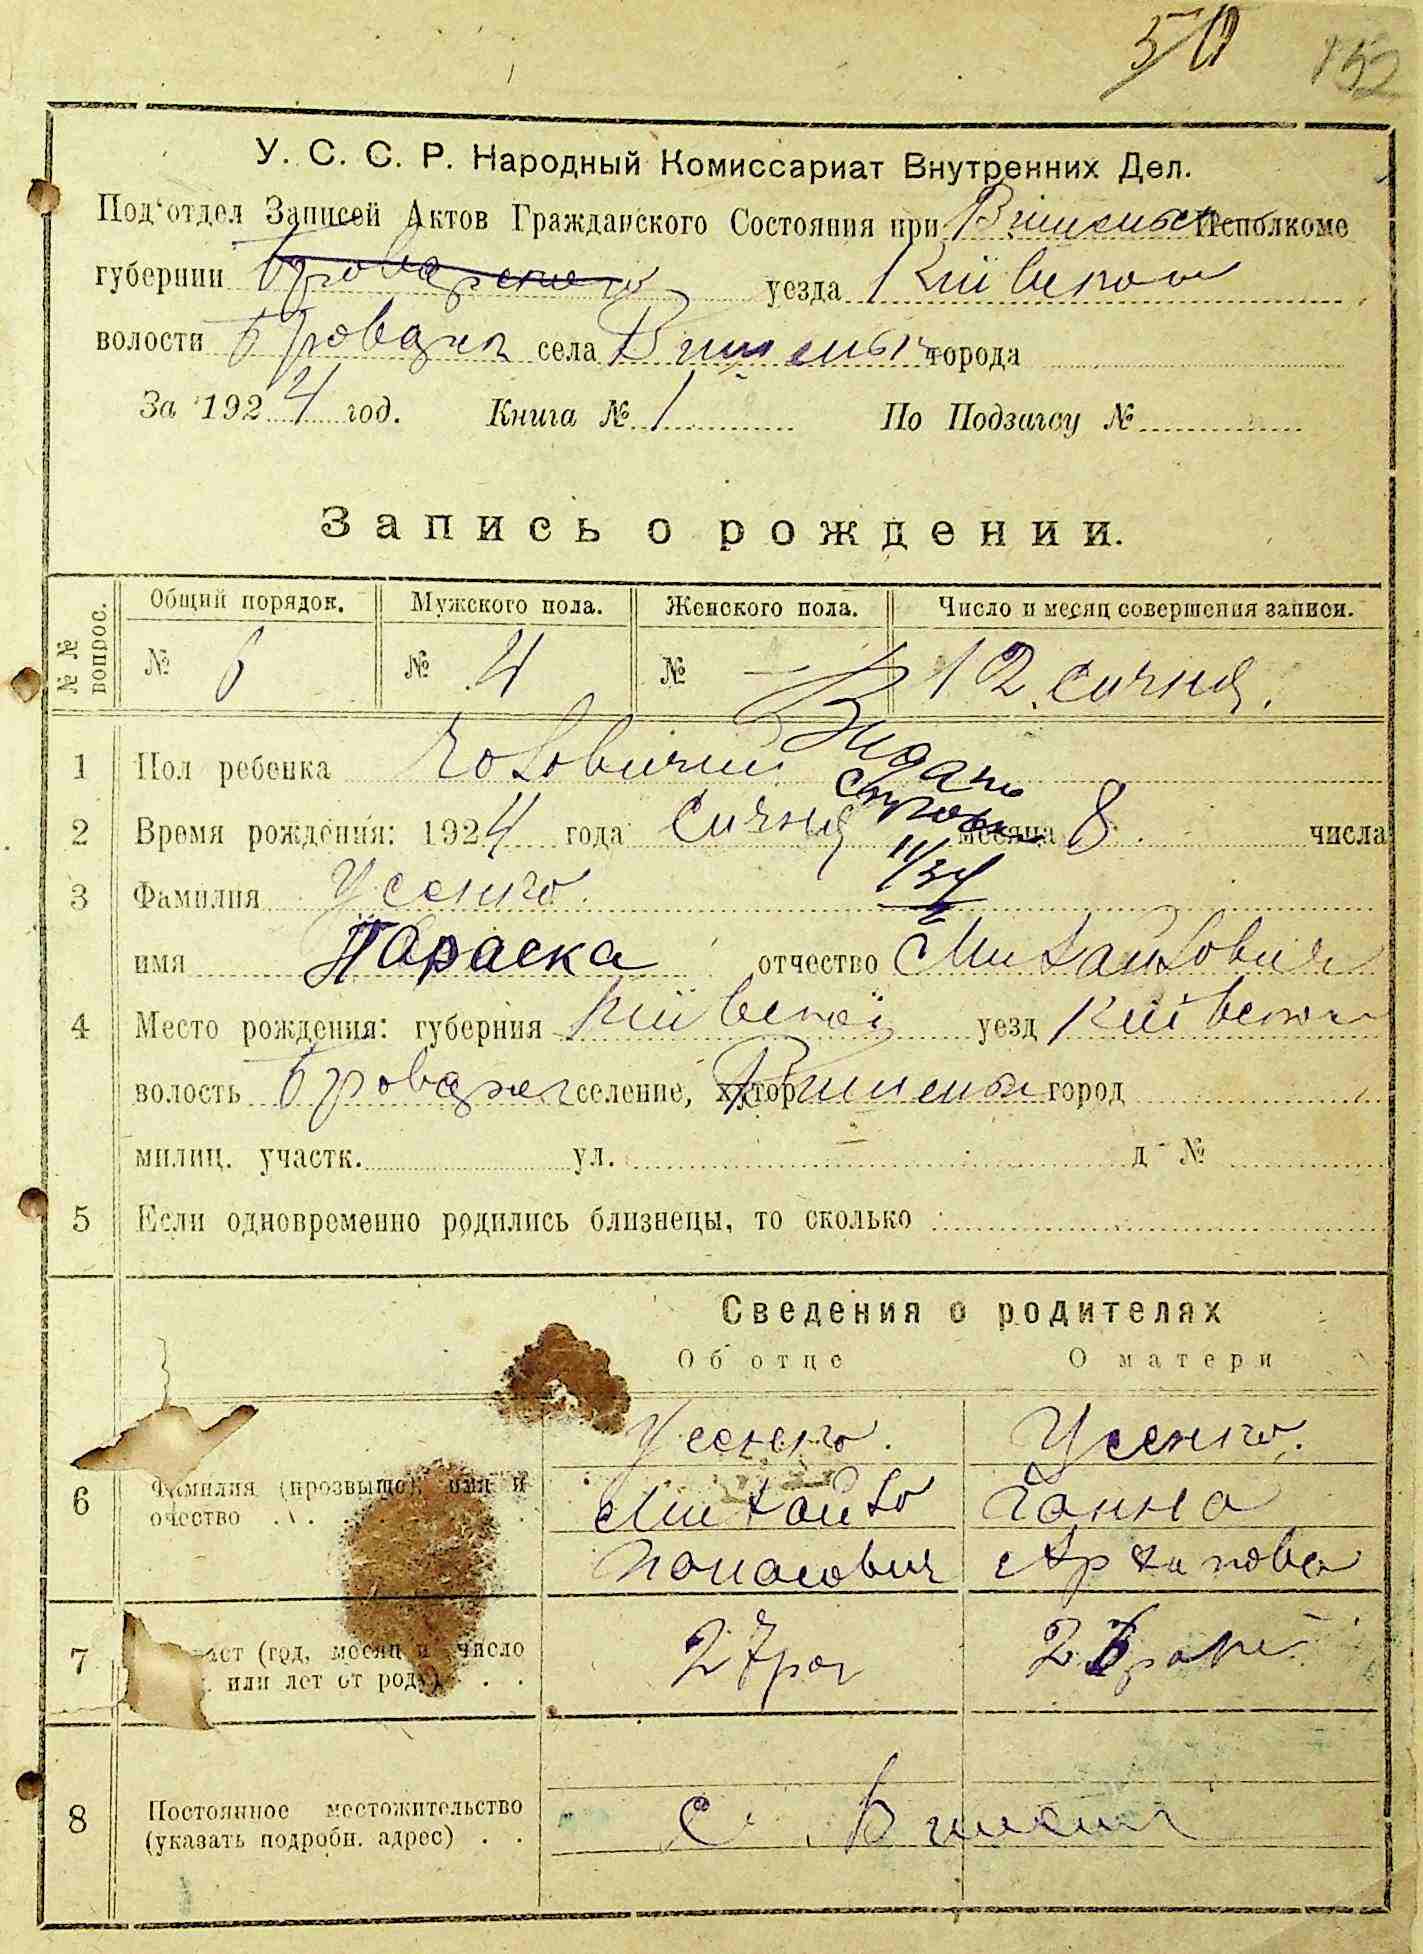 50 152
У. С. С. Р. Народный Комиссариат Внутренних Дел.
Под'отдел Записей Актов Гражданского Состояния при Исполкоме
губернии Броварского уезда Київского
волости Бровари села города
За 1924 год. Книга № 1 По Подзагсу №
Запись о рождении.
№ № вопрос. Общий порядок. Мужского пола. Женского пола. Число и месяц совершения записи.
№ 6 № 4 № — 12 сичня.
1 Пол ребенка Чоловичий Видано
2 Время рождения: 1924 года Сичня месяца 8 числа
3 Фамилия Усенко
имя Параска отчество Михайлович
4 Место рождения: губерния Київської уезд Київского
волость селение, хутор город
милиц. участк. ул. д № 
5 Если одновременно родились близнецы, то сколько
Сведения о родителях
Об отце О матери
6 Фамилия (прозвище), имя и Усенко. Усенко.
очество . . Михайло Ганна
Панасович Архипова
7 аст (год, месяц и число 27 рок 23 роки
или лет от роду) . .
8 Постоянное местожительство
(указать подробн. адрес) . . с.